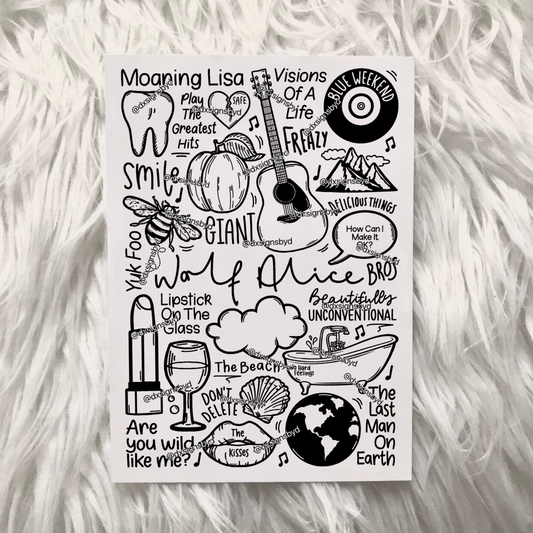 Moaning Lisa
Visions
Of A
Life
BLUE WEEKEND
Play
The
Greatest
Hits
SAFE
FREAZY
Smile
GIANT
DELICIOUS THINGS
How Can I
Make It
OK?
Yuk Foo
Wolf Alice
BROS
Lipstick
On The
Glass
Beautifully
UNCONVENTIONAL
The Beach
No Hard
Feelings
DON'T
DELETE
The
Kisses
Are
you wild
like me?
The
Last
Man
On
Earth
@dxsignsbyd